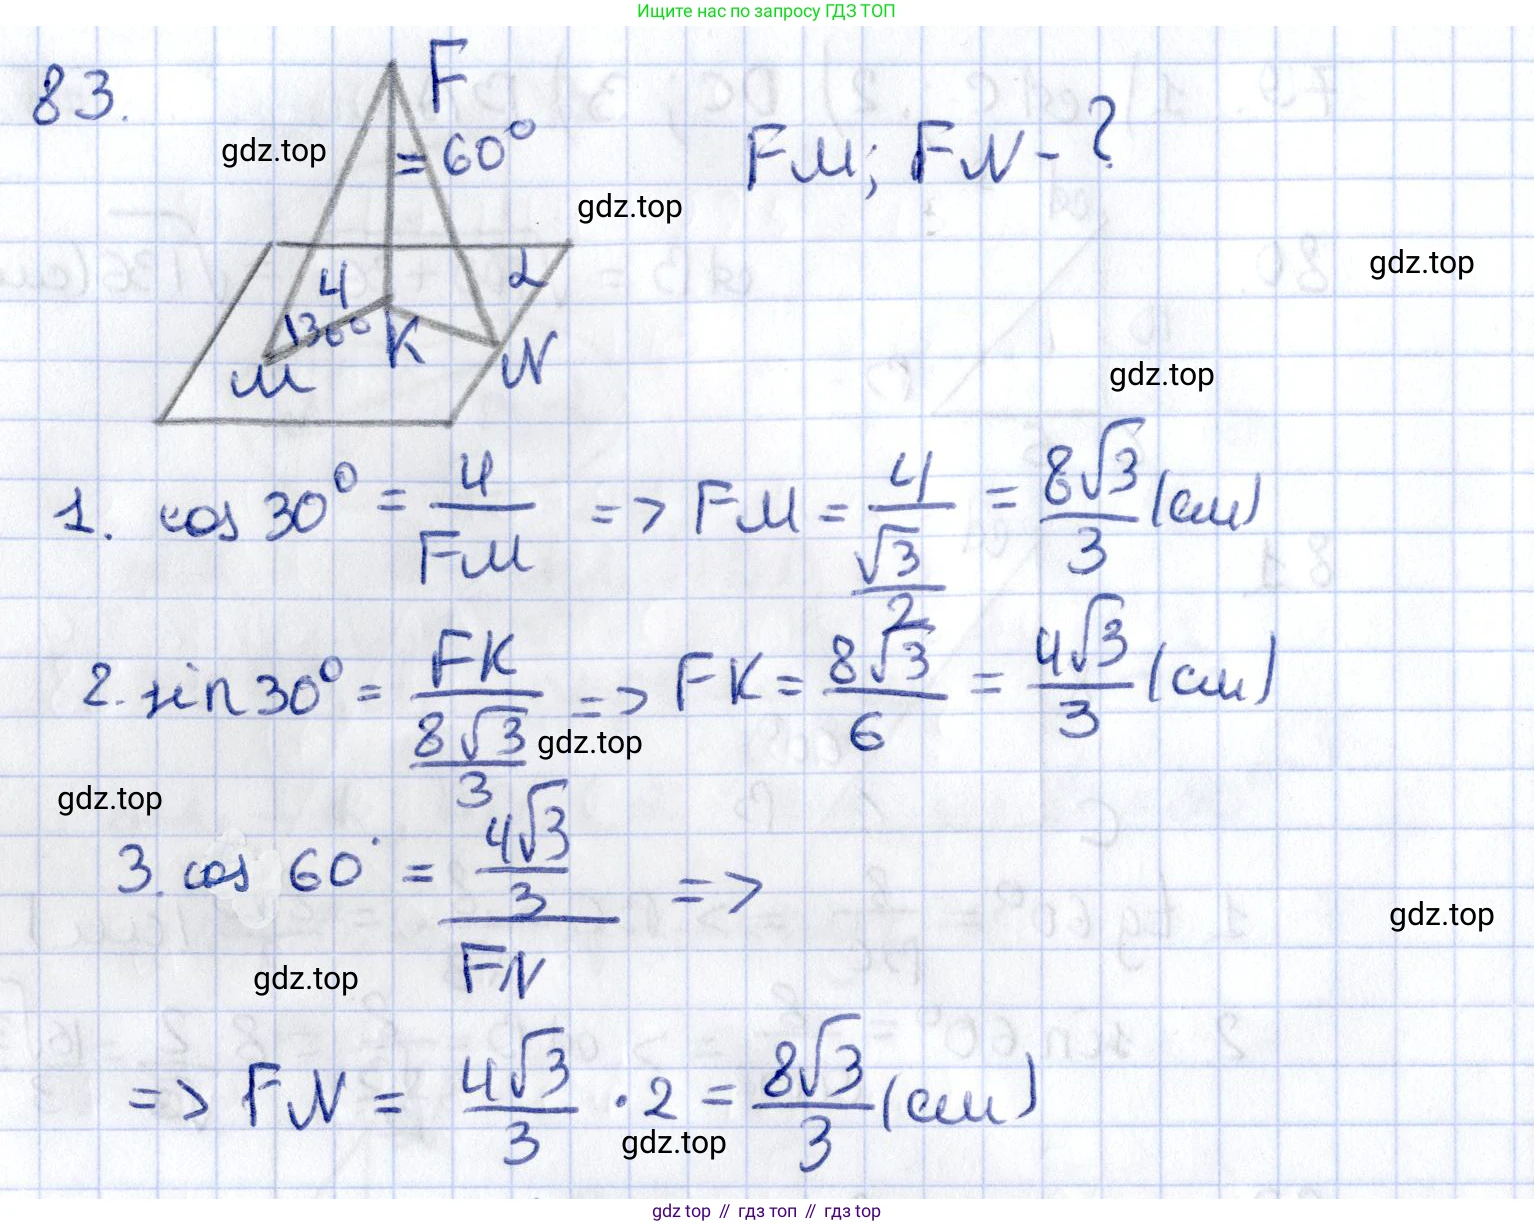 Ищите нас по запросу ГДЗ ТОП
83.
F
= 60°
FM; FN - ?
gdz.top
gdz.top
gdz.top
4
2
30°
K
M
N
gdz.top
1. cos 30° = 4/FM => FM = 4/(√3/2) = 8√3/3 (см)
2. sin 30° = FK/(8√3/3) => FK = 8√3/6 = 4√3/3 (см)
gdz.top
gdz.top
3. cos 60° = (4√3/3)/FN =>
gdz.top
gdz.top
=> FN = 4√3/3 · 2 = 8√3/3 (см)
gdz.top
gdz top // гдз топ // гдз top